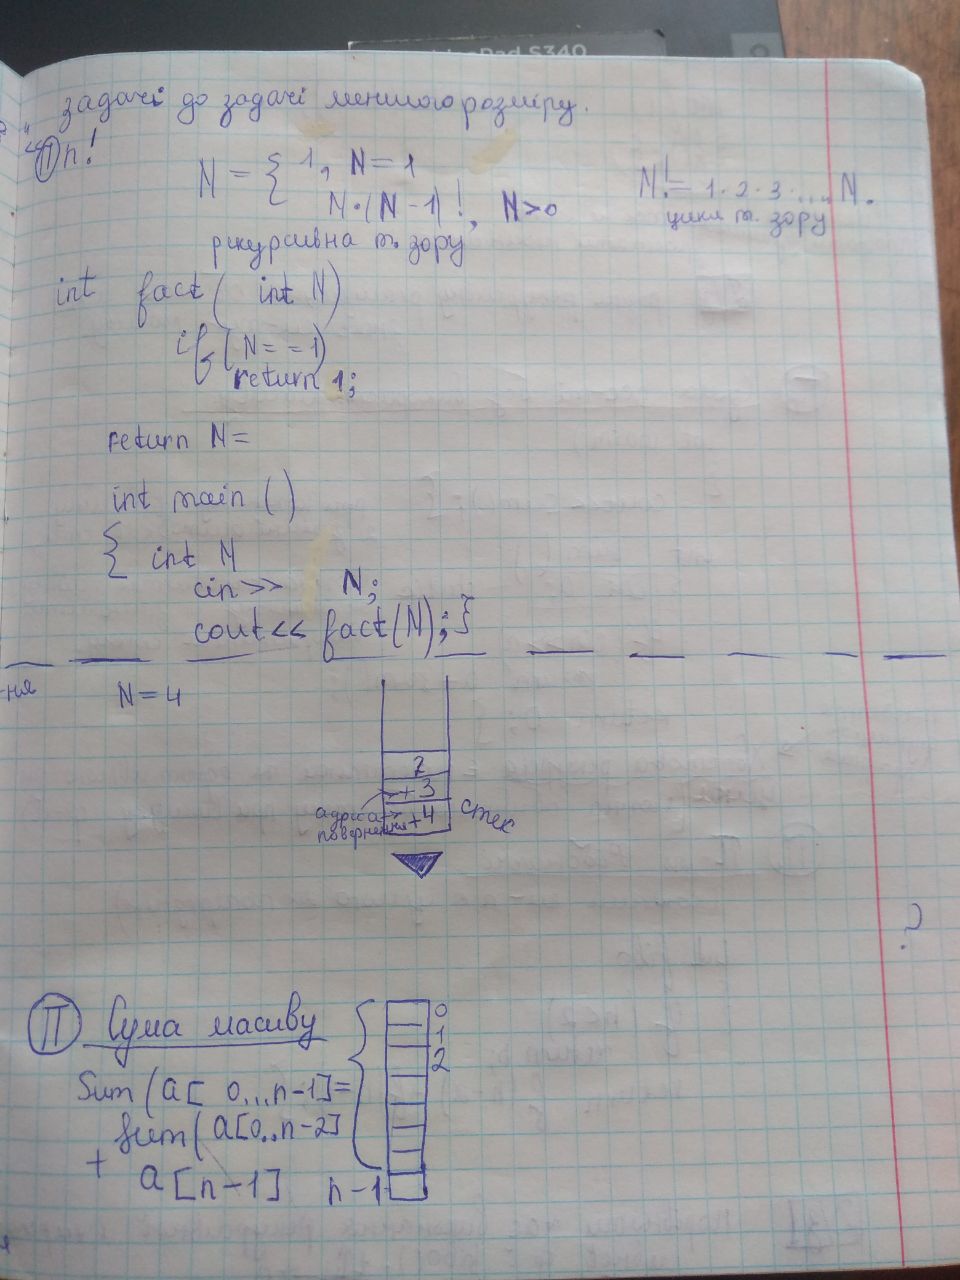 S340
задачі до задачі меншого розміру.
П n!
N = { 1, N = 1
N·(N-1)!, N>0
N!= 1·2·3·.... N.
цикл т. зору
рекурсивна т. зору
int fact( int N)
if (N==1)
return 1;
return N=
int main ()
{ int N
cin>> N;
cout<< fact(N);}
-ня
N=4
2
+3
+4
адреса
повернення
стек
?
П Сума масиву
0
1
2
Sum (a[ 0...n-1]=
sum (a[0..n-2]
+
a[n-1]
n-1